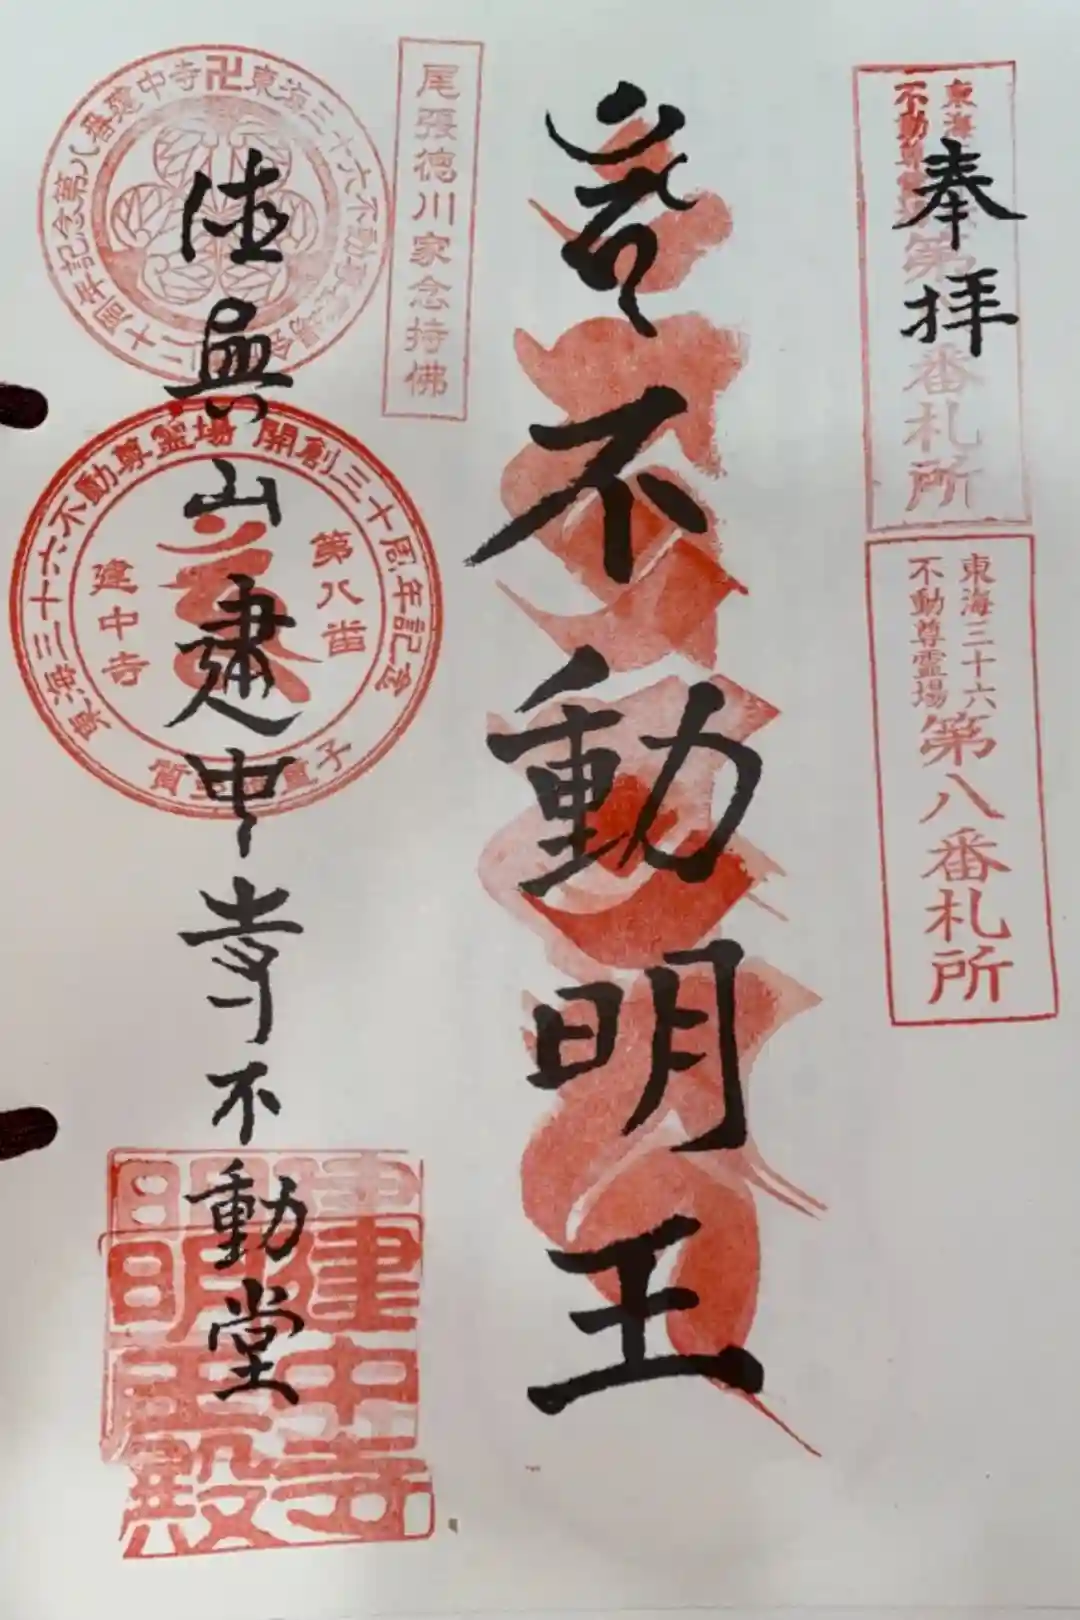 奉拝
東海
不動尊
第
番札所
東海三十六
不動尊霊場
第八番札所
不動明王
尾張徳川家念持佛
東海三十六不動尊霊場会二十周年記念第八番建中寺卍
徳興山建中寺不動堂
東海三十六不動尊霊場 開創三十周年記念
第八番
建中寺
童子
建中寺
明王殿